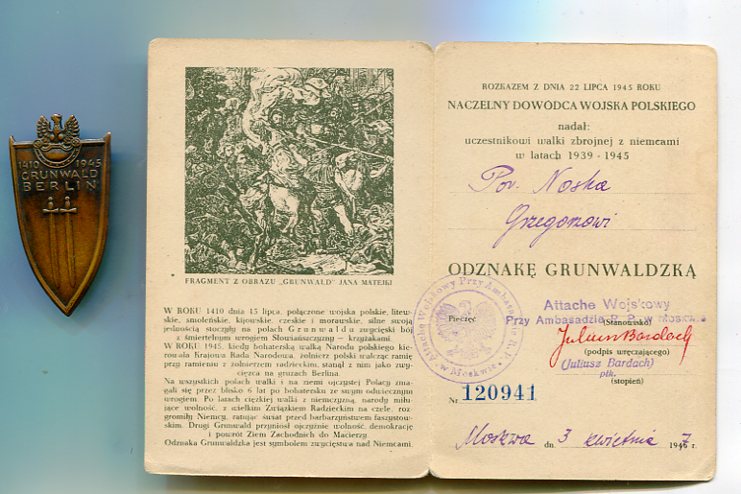 1410 1945
GRUNWALD
BERLIN
FRAGMENT Z OBRAZU „GRUNWALD" JANA MATEJKI
W ROKU 1410 dnia 15 lipca, połączone wojska polskie, litew-
skie, smoleńskie, kijowskie, czeskie i morawskie, silne swoją
jednością stoczyły na polach Grunwaldu zwycięski bój
z śmiertelnym wrogiem Słowiańszczyzny — krzyżakami.
W ROKU 1945, kiedy bohaterską walką Narodu polskiego kie-
rowała Krajowa Rada Narodowa, żołnierz polski walcząc ramię
przy ramieniu z żołnierzem radzieckim, stanął z nim jako zwy-
cięzca na gruzach Berlina.
Na wszystkich polach walki i na ziemi ojczystej Polacy zma-
gali się przez blisko 6 lat po bohatersku ze swym odwiecznym
wrogiem. Po latach ciężkiej walki z niemczyzną, narody miłu-
jące wolność, z wielkim Związkiem Radzieckim na czele, roz-
gromiły Niemcy, ratując świat przed barbarzyństwem faszystow-
skim. Drugi Grunwald przyniósł ojczyźnie wolność, demokrację
i powrót Ziem Zachodnich do Macierzy.
Odznaka Grunwaldzka jest symbolem zwycięstwa nad Niemcami.
ROZKAZEM Z DNIA 22 LIPCA 1945 ROKU
NACZELNY DOWÓDCA WOJSKA POLSKIEGO
nadał:
uczestnikowi walki zbrojnej z niemcami
w latach 1939 - 1945
Por. Noska
Grzegorzowi
ODZNAKĘ GRUNWALDZKĄ
Attache Wojskowy Przy Ambasadzie R.P.
w Moskwie
Pieczęć
Attache Wojskowy
Przy Ambasadzie R. P. w Moskwie
(Stanowisko)
Juliusz Bardach
(podpis wręczającego)
(Juliusz Bardach)
płk.
(stopień)
Nr 120941
Moskwa dn. 3 kwietnia 1947 r.